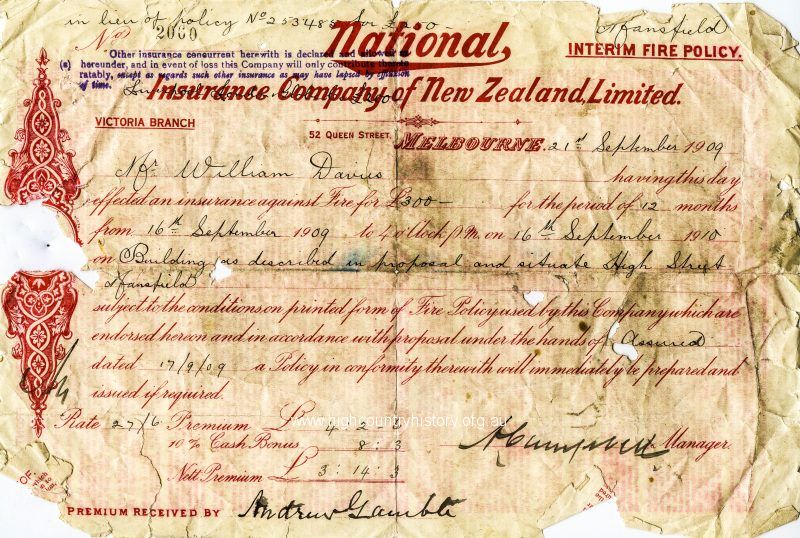 in lieu of policy No 253485 for £
Mansfield
No 2060
National
INTERIM FIRE POLICY.
(a) Other insurance concurrent herewith is declared and allowed as
hereunder, and in event of loss this Company will only contribute thereto
ratably, except as regards such other insurance as may have lapsed by effluxion
of time.
Insurance Company of New Zealand, Limited.
VICTORIA BRANCH
52 QUEEN STREET, MELBOURNE. 21st September 1909
Mr William Davies having this day
effected an insurance against Fire for £300- for the period of 12 months
from 16th September 1909 to 4 o'Clock p.m. on 16th September 1910
on Building as described in proposal and situate High Street
Mansfield
subject to the conditions on printed form of Fire Policy used by this Company which are
endorsed hereon and in accordance with proposal under the hands of Assured
dated 17/9/09 a Policy in conformity therewith will immediately be prepared and
issued if required.
Rate 27/6 Premium £ 4 : 2 : 6
www.highcountryhistory.org.au
10 % Cash Bonus 8 : 3
Nett Premium £ 3 : 14 : 3
Manager.
OF.
PREMIUM RECEIVED BY Andrew Gamble